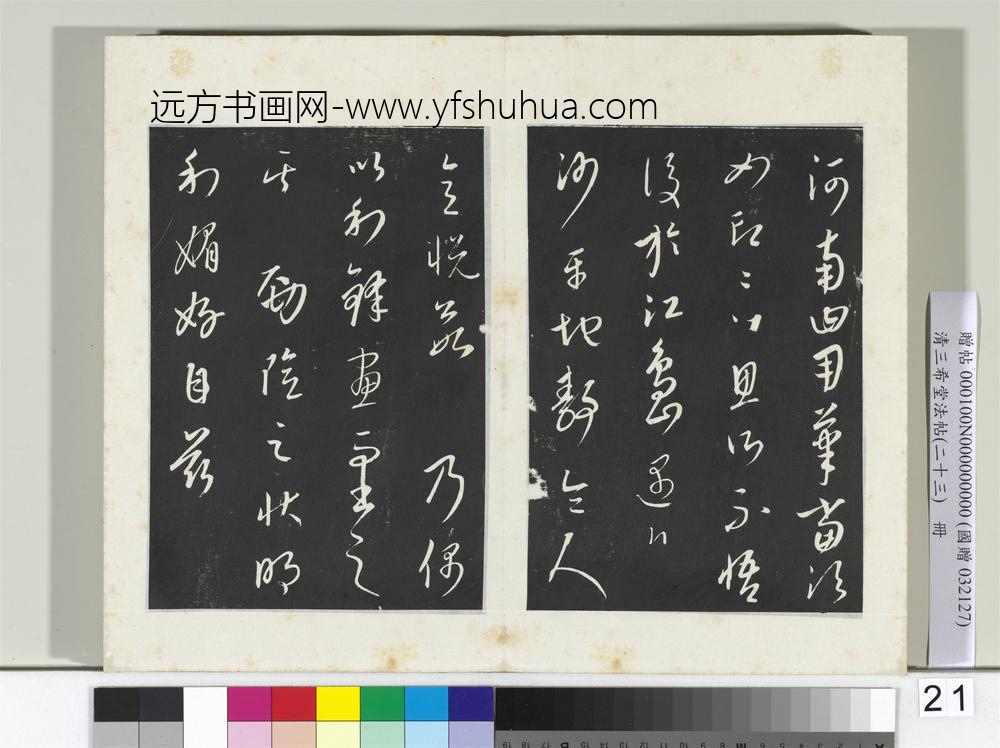 远方书画网-www.yfshuhua.com
河南曰用筆當須
如印〻思所不悟
後於江島遇
沙平地靜令人
意悅乃偶
以利鋒畫而書之
其勁險之狀明
利媚好自茲
贈帖 000100N000000000 (國贈 032127)
清三希堂法帖(二十三) 冊
21